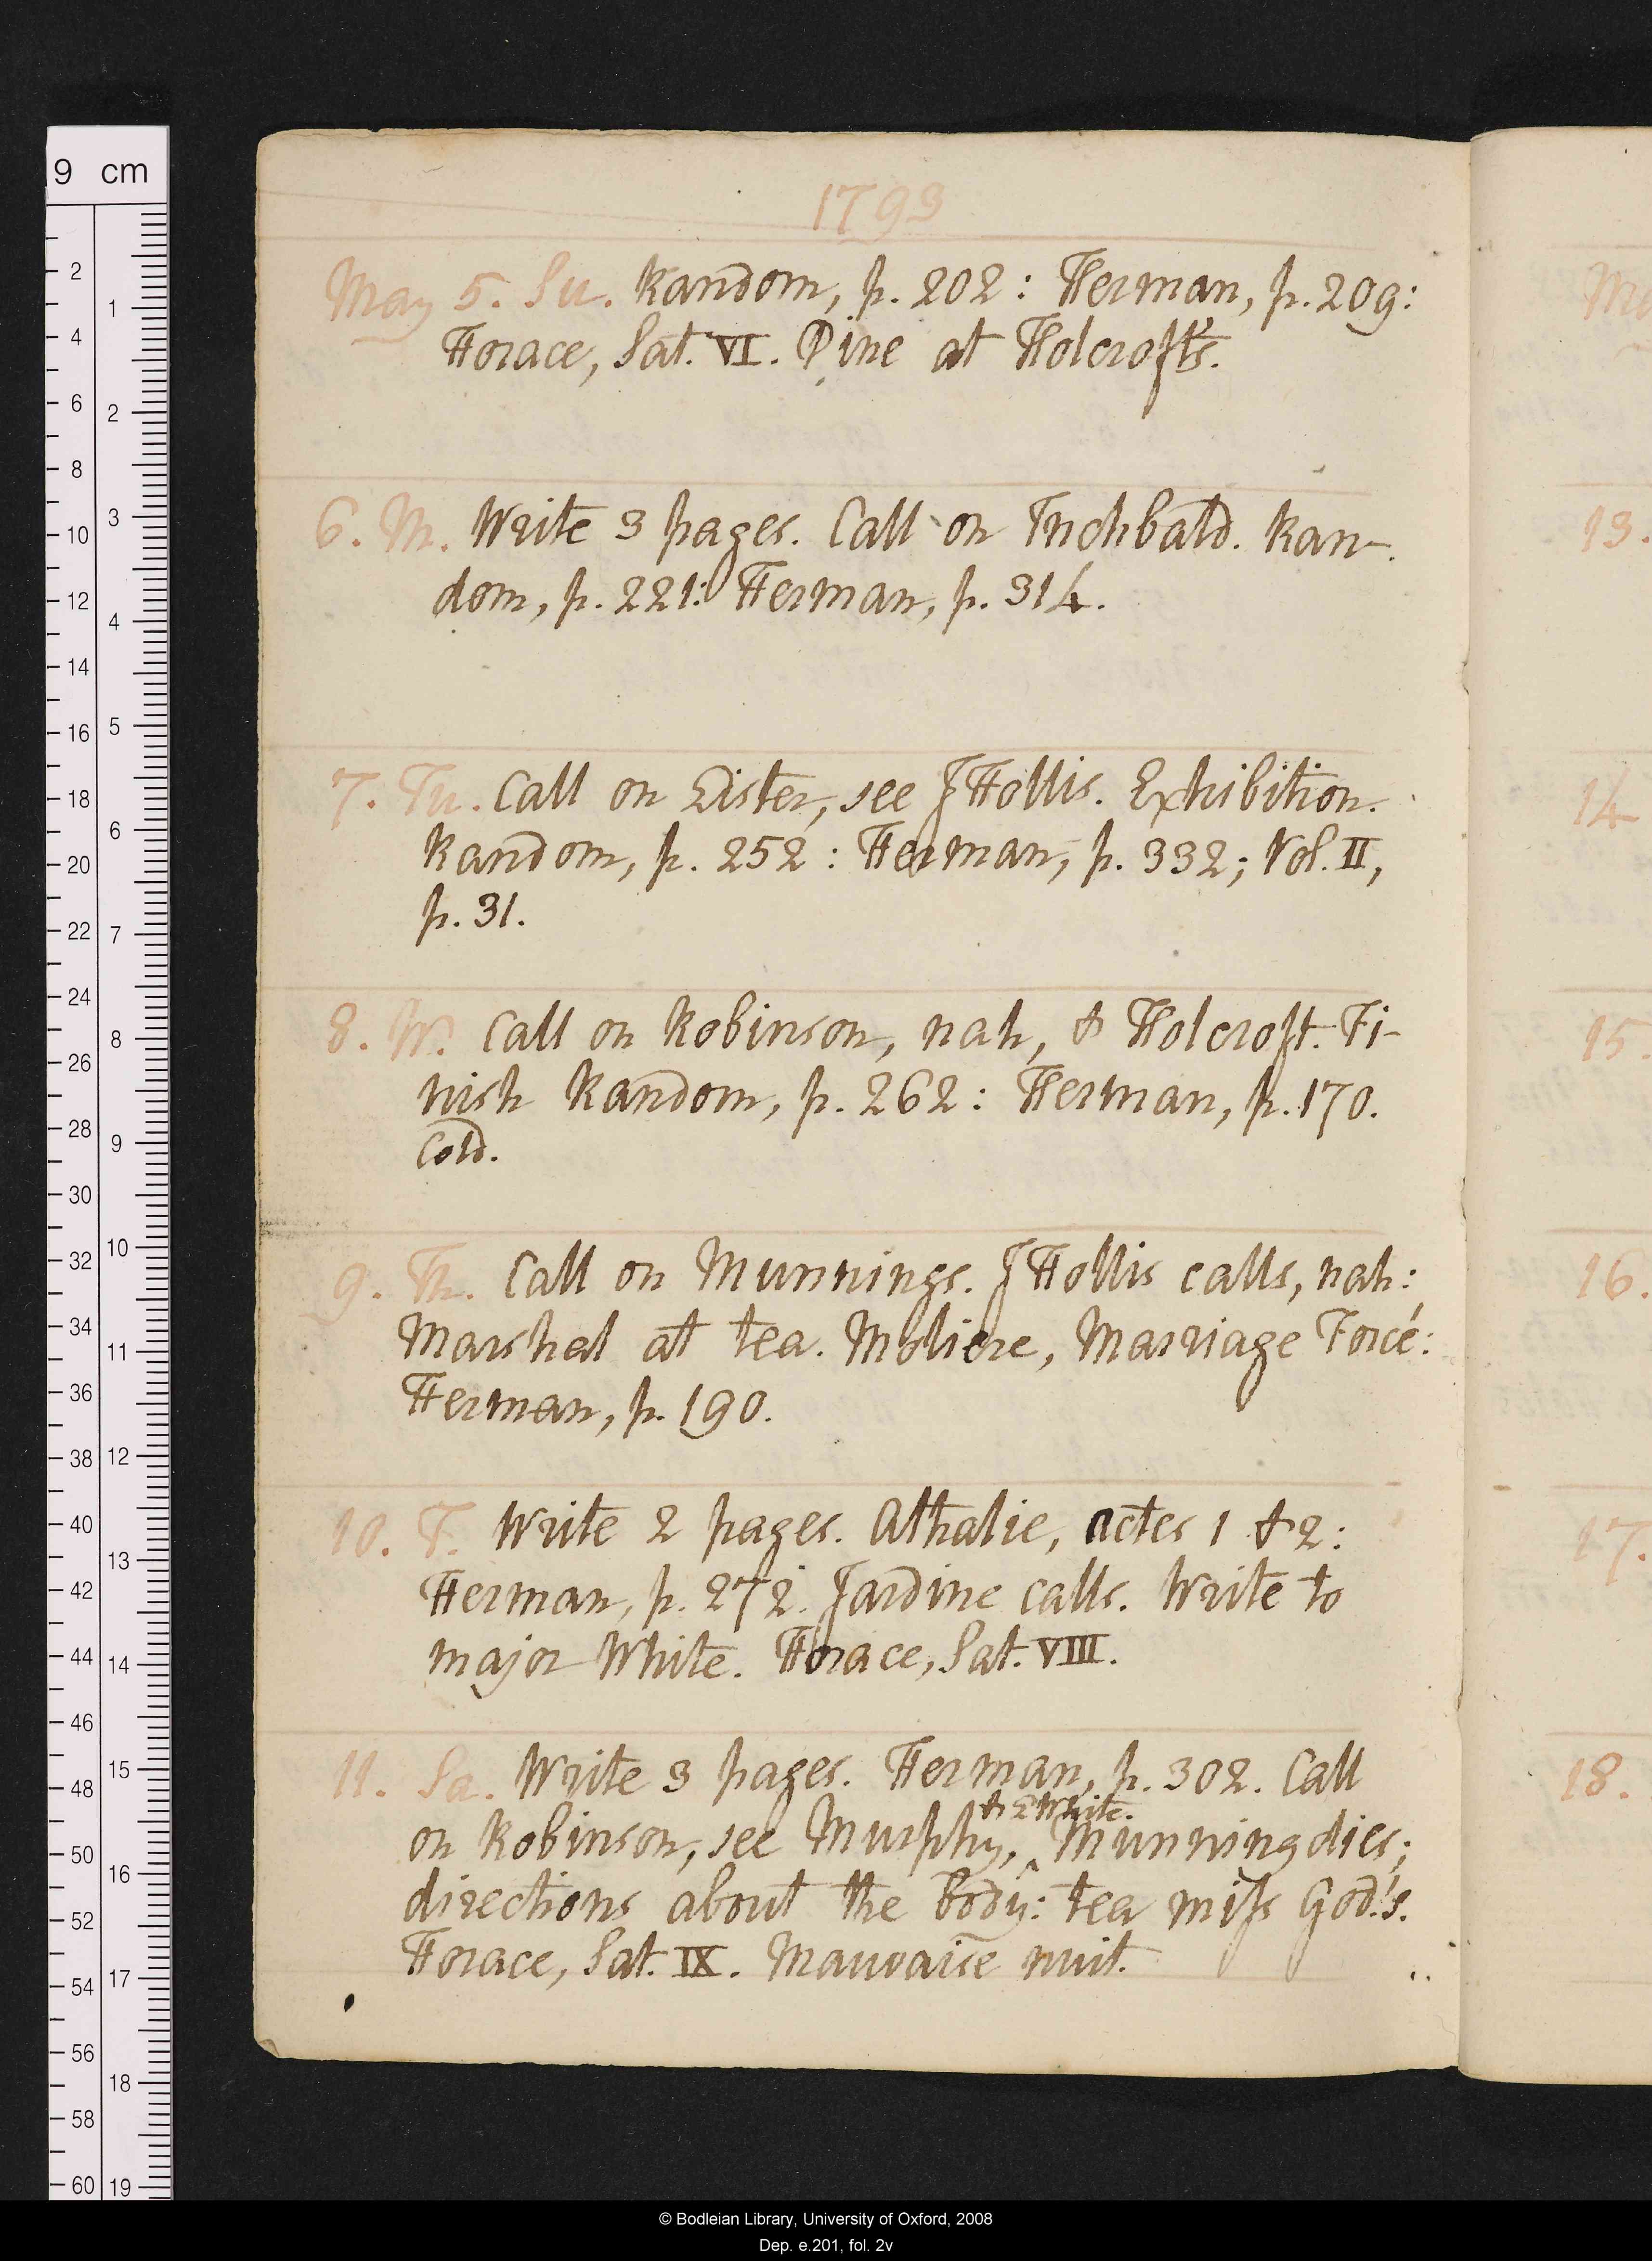 1793
May 5. Su. Random, p. 202: Herman, p. 209:
Horace, Sat. VI. Dine at Holcroft's.
6. M. Write 3 pages. Call on Inchbald. Ran-
dom, p. 221: Herman, p. 314.
7. Tu. Call on Lister, see J Hollis. Exhibition.
Random, p. 252: Herman, p. 332; Vol. II,
p. 31.
8. W. Call on Robinson, nah, & Holcroft. Fi-
nish Random, p. 262: Herman, p. 170.
Cold.
9. Th. Call on Munnings. J Hollis calls, nah:
Marshal at tea. Moliere, Marriage Forcé:
Herman, p. 190.
10. F. Write 2 pages. Athalie, actes 1 & 2:
Herman, p. 272. Jardine calls. Write to
major White. Horace, Sat. VIII.
11. Sa. Write 3 pages. Herman, p. 302. Call
& E White.
on Robinson, see Murphy, ^ Munning dies;
directions about the body: tea miss God.'s.
Horace, Sat. IX. Mauvaise nuit.
Ma
13.
14
15.
16.
17.
18.
9 cm
2
4
6
8
10
12
14
16
18
20
22
24
26
28
30
32
34
36
38
40
42
44
46
48
50
52
54
56
58
60
1
2
3
4
5
6
7
8
9
10
11
12
13
14
15
16
17
18
19
© Bodleian Library, University of Oxford, 2008
Dep. e.201, fol. 2v